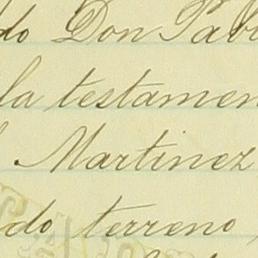 do Don Pab
la testamen
Martinez
do terreno,